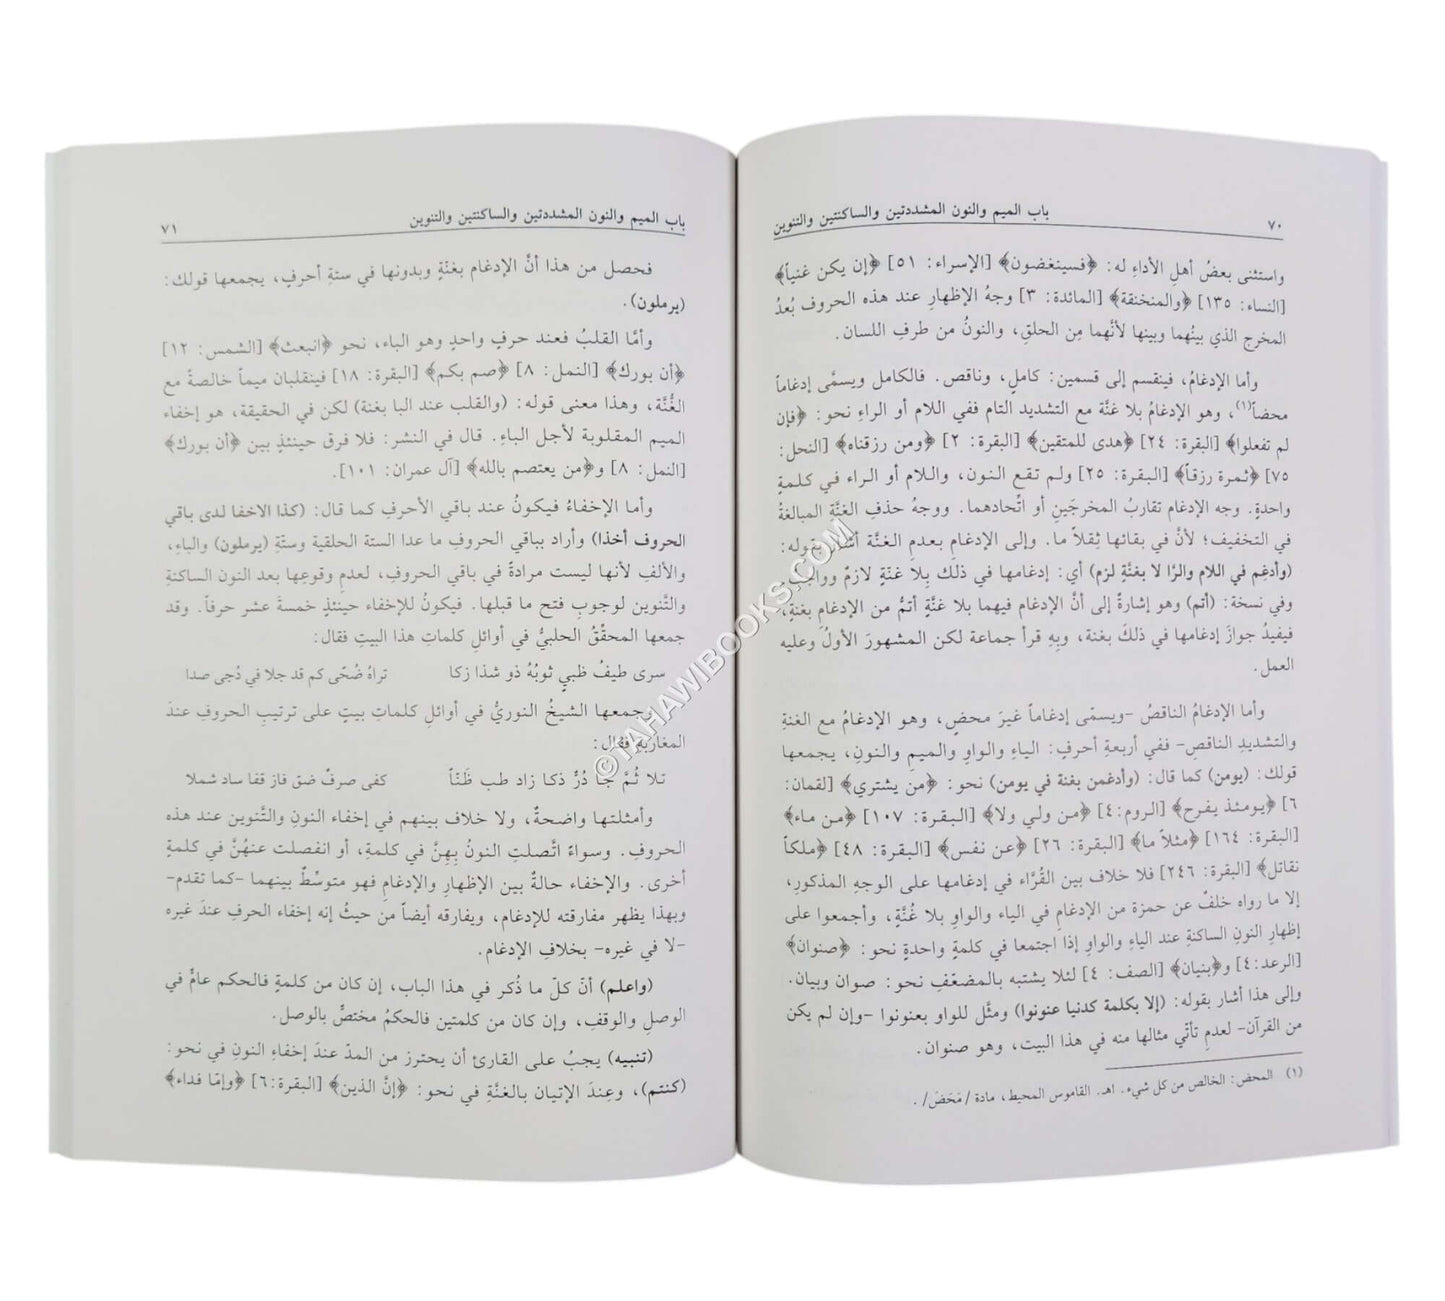 ٧٠ باب الميم والنون المشددتين والساكنتين والتنوين
واستثنى بعضُ أهلِ الأداءِ له: ﴿فسينغضون﴾ [الإسراء: ٥١] ﴿إن يكن غنياً﴾
[النساء: ١٣٥] ﴿والمنخنقة﴾ [المائدة: ٣] وجهُ الإظهارِ عند هذه الحروف بُعدُ
المخرج الذي بينُهما وبينها لأنَّهما مِن الحلقِ، والنونُ من طرفِ اللسان.
وأما الإدغامُ، فينقسم إلى قسمين: كاملٍ، وناقص. فالكامل ويسمَّى إدغاماً
محضاً(١)، وهو الإدغامُ بلا غنَّة مع التشديد التام ففي اللام أو الراءِ نحو: ﴿فإن
لم تفعلوا﴾ [البقرة: ٢٤] ﴿هدى للمتقين﴾ [البقرة: ٢] ﴿ومن رزقناه﴾ [النحل:
٧٥] ﴿ثمرة رزقاً﴾ [البقرة: ٢٥] ولم تقع النون، واللام أو الراء في كلمةٍ
واحدةٍ. وجه الإدغام تقاربُ المخرجَينِ أو اتِّحادهما. ووجهُ حذفِ الغنَّة المبالغةُ
في التخفيف؛ لأنَّ في بقائها ثِقلاً ما. وإلى الإدغامِ بعدمِ الغنَّة أشار بقوله:
(وأدغم في اللام والرَّا لا بغنَّةٍ لزم) أي: إدغامها في ذلك بِلا غنَّةٍ لازمٌ وواجبٌ.
وفي نسخة: (أتم) وهو إشارةٌ إلى أنَّ الإدغام فيهما بلا غنَّةٍ أتمُّ من الإدغامِ بغنةٍ،
فيفيدُ جوازَ إدغامها في ذلكَ بغنة، وبِهِ قرأ جماعة لكن المشهورَ الأولُ وعليه
العمل.
وأما الإدغامُ الناقصُ -ويسمّى إدغاماً غيرَ محضٍ، وهو الإدغامُ مع الغنةِ
والتشديدِ الناقصِ- ففي أربعةِ أحرفٍ: الياءِ والواوِ والميمِ والنونِ، يجمعها
قولك: (يومن) كما قال: (وأدغمن بغنة في يومن) نحو: ﴿من يشتري﴾ [لقمان:
٦] ﴿يومئذ يفرح﴾ [الروم:٤] ﴿من ولي ولا﴾ [البقرة: ١٠٧] ﴿من ماء﴾
[البقرة: ١٦٤] ﴿مثلاً ما﴾ [البقرة: ٢٦] ﴿عن نفس﴾ [البقرة: ٤٨] ﴿ملكاً
نقاتل﴾ [البقرة: ٢٤٦] فلا خلاف بين القُرَّاء في إدغامها على الوجهِ المذكورِ،
إلا ما رواه خلفٌ عن حمزة من الإدغامِ في الياء والواوِ بلا غُنَّةٍ، وأجمعوا على
إظهارِ النونِ الساكنةِ عند الياءِ والواوِ إذا اجتمعا في كلمةٍ واحدةٍ نحو: ﴿صنوان﴾
[الرعد:٤] و﴿بنيان﴾ [الصف: ٤] لئلا يشتبه بالمضعَّفِ نحو: صوان وبيان.
وإلى هذا أشار بقوله: (إلا بكلمة كدنيا عنونوا) ومثَّل للواو بعنونوا -وإن لم يكن
من القرآن- لعدمِ تأتّي مثالها منه في هذا البيت، وهو صنوان.
(١) المحض: الخالص من كل شيء. اهـ. القاموس المحيط، مادة /مَحَضَ/.
باب الميم والنون المشددتين والساكنتين والتنوين ٧١
فحصل من هذا أنَّ الإدغام بغنَّةٍ وبدونها في ستةِ أحرفٍ، يجمعها قولك:
(يرملون).
وأمَّا القلبُ فعند حرفٍ واحدٍ وهو الباء، نحو ﴿انبعث﴾ [الشمس: ١٢]
﴿أن بورك﴾ [النمل: ٨] ﴿صم بكم﴾ [البقرة: ١٨] فينقلبان ميماً خالصةً مع
الغُنَّة، وهذا معنى قوله: (والقلب عند البا بغنة) لكن في الحقيقة، هو إخفاء
الميم المقلوبة لأجل الباءِ. قال في النشر: فلا فرق حينئذٍ بين ﴿أن بورك﴾
[النمل: ٨] و﴿من يعتصم بالله﴾ [آل عمران: ١٠١].
وأما الإخفاءُ فيكونُ عند باقي الأحرفِ كما قال: (كذا الاخفا لدى باقي
الحروف أخذا) وأراد بباقي الحروفِ ما عدا الستة الحلقية وستّةِ (يرملون) والباءِ،
والألفِ لأنها ليست مرادةً في باقي الحروفِ، لعدمِ وقوعِها بعد النون الساكنةِ
والتَّنوين لوجوبِ فتح ما قبلها. فيكونُ للإخفاء حينئذٍ خمسةَ عشر حرفاً. وقد
جمعها المحقِّقُ الحلبيُّ في أوائلِ كلماتِ هذا البيتِ فقال:
سرى طيفُ ظبيٍ ثوبُهُ ذو شذا زكا تراهُ ضُحّى كم قد جلا في دُجى صدا
وجمعها الشيخُ النوريُّ في أوائلِ كلماتِ بيتٍ على ترتيبِ الحروفِ عندَ
المغاربةِ فقال:
تلا ثُمَّ جَا دُرٌّ ذكا زاد طب ظَنّاً كفى صرفُ ضق فاز قفا ساد شملا
وأمثلتها واضحةٌ، ولا خلاف بينهم في إخفاء النونِ والتَّنوين عند هذه
الحروفِ. وسواءً اتَّصلتِ النونُ بِهِنَّ في كلمةٍ، أو انفصلت عنهُنَّ في كلمةٍ
أخرى. والإخفاء حالةٌ بين الإظهارِ والإدغامِ فهو متوسِّطٌ بينهما -كما تقدم-
وبهذا يظهر مفارقته للإدغام، ويفارقه أيضاً من حيثُ إنه إخفاء الحرفِ عندَ غيره
-لا في غيره- بخلافِ الإدغام.
(واعلم) أنّ كلّ ما ذُكر في هذا الباب، إن كان من كلمةٍ فالحكم عامٌّ في
الوصلِ والوقفِ، وإن كان من كلمتين فالحكمُ مختصٌّ بالوصل.
(تنبيه) يجبُ على القارئ أن يحترز من المدّ عندَ إخفاءِ النونِ في نحو:
(كنتم)، وعِندَ الإتيان بالغنَّةِ في نحو: ﴿إنَّ الذين﴾ [البقرة:٦] ﴿وإمّا فداء﴾
©TAHAWIBOOKS.COM